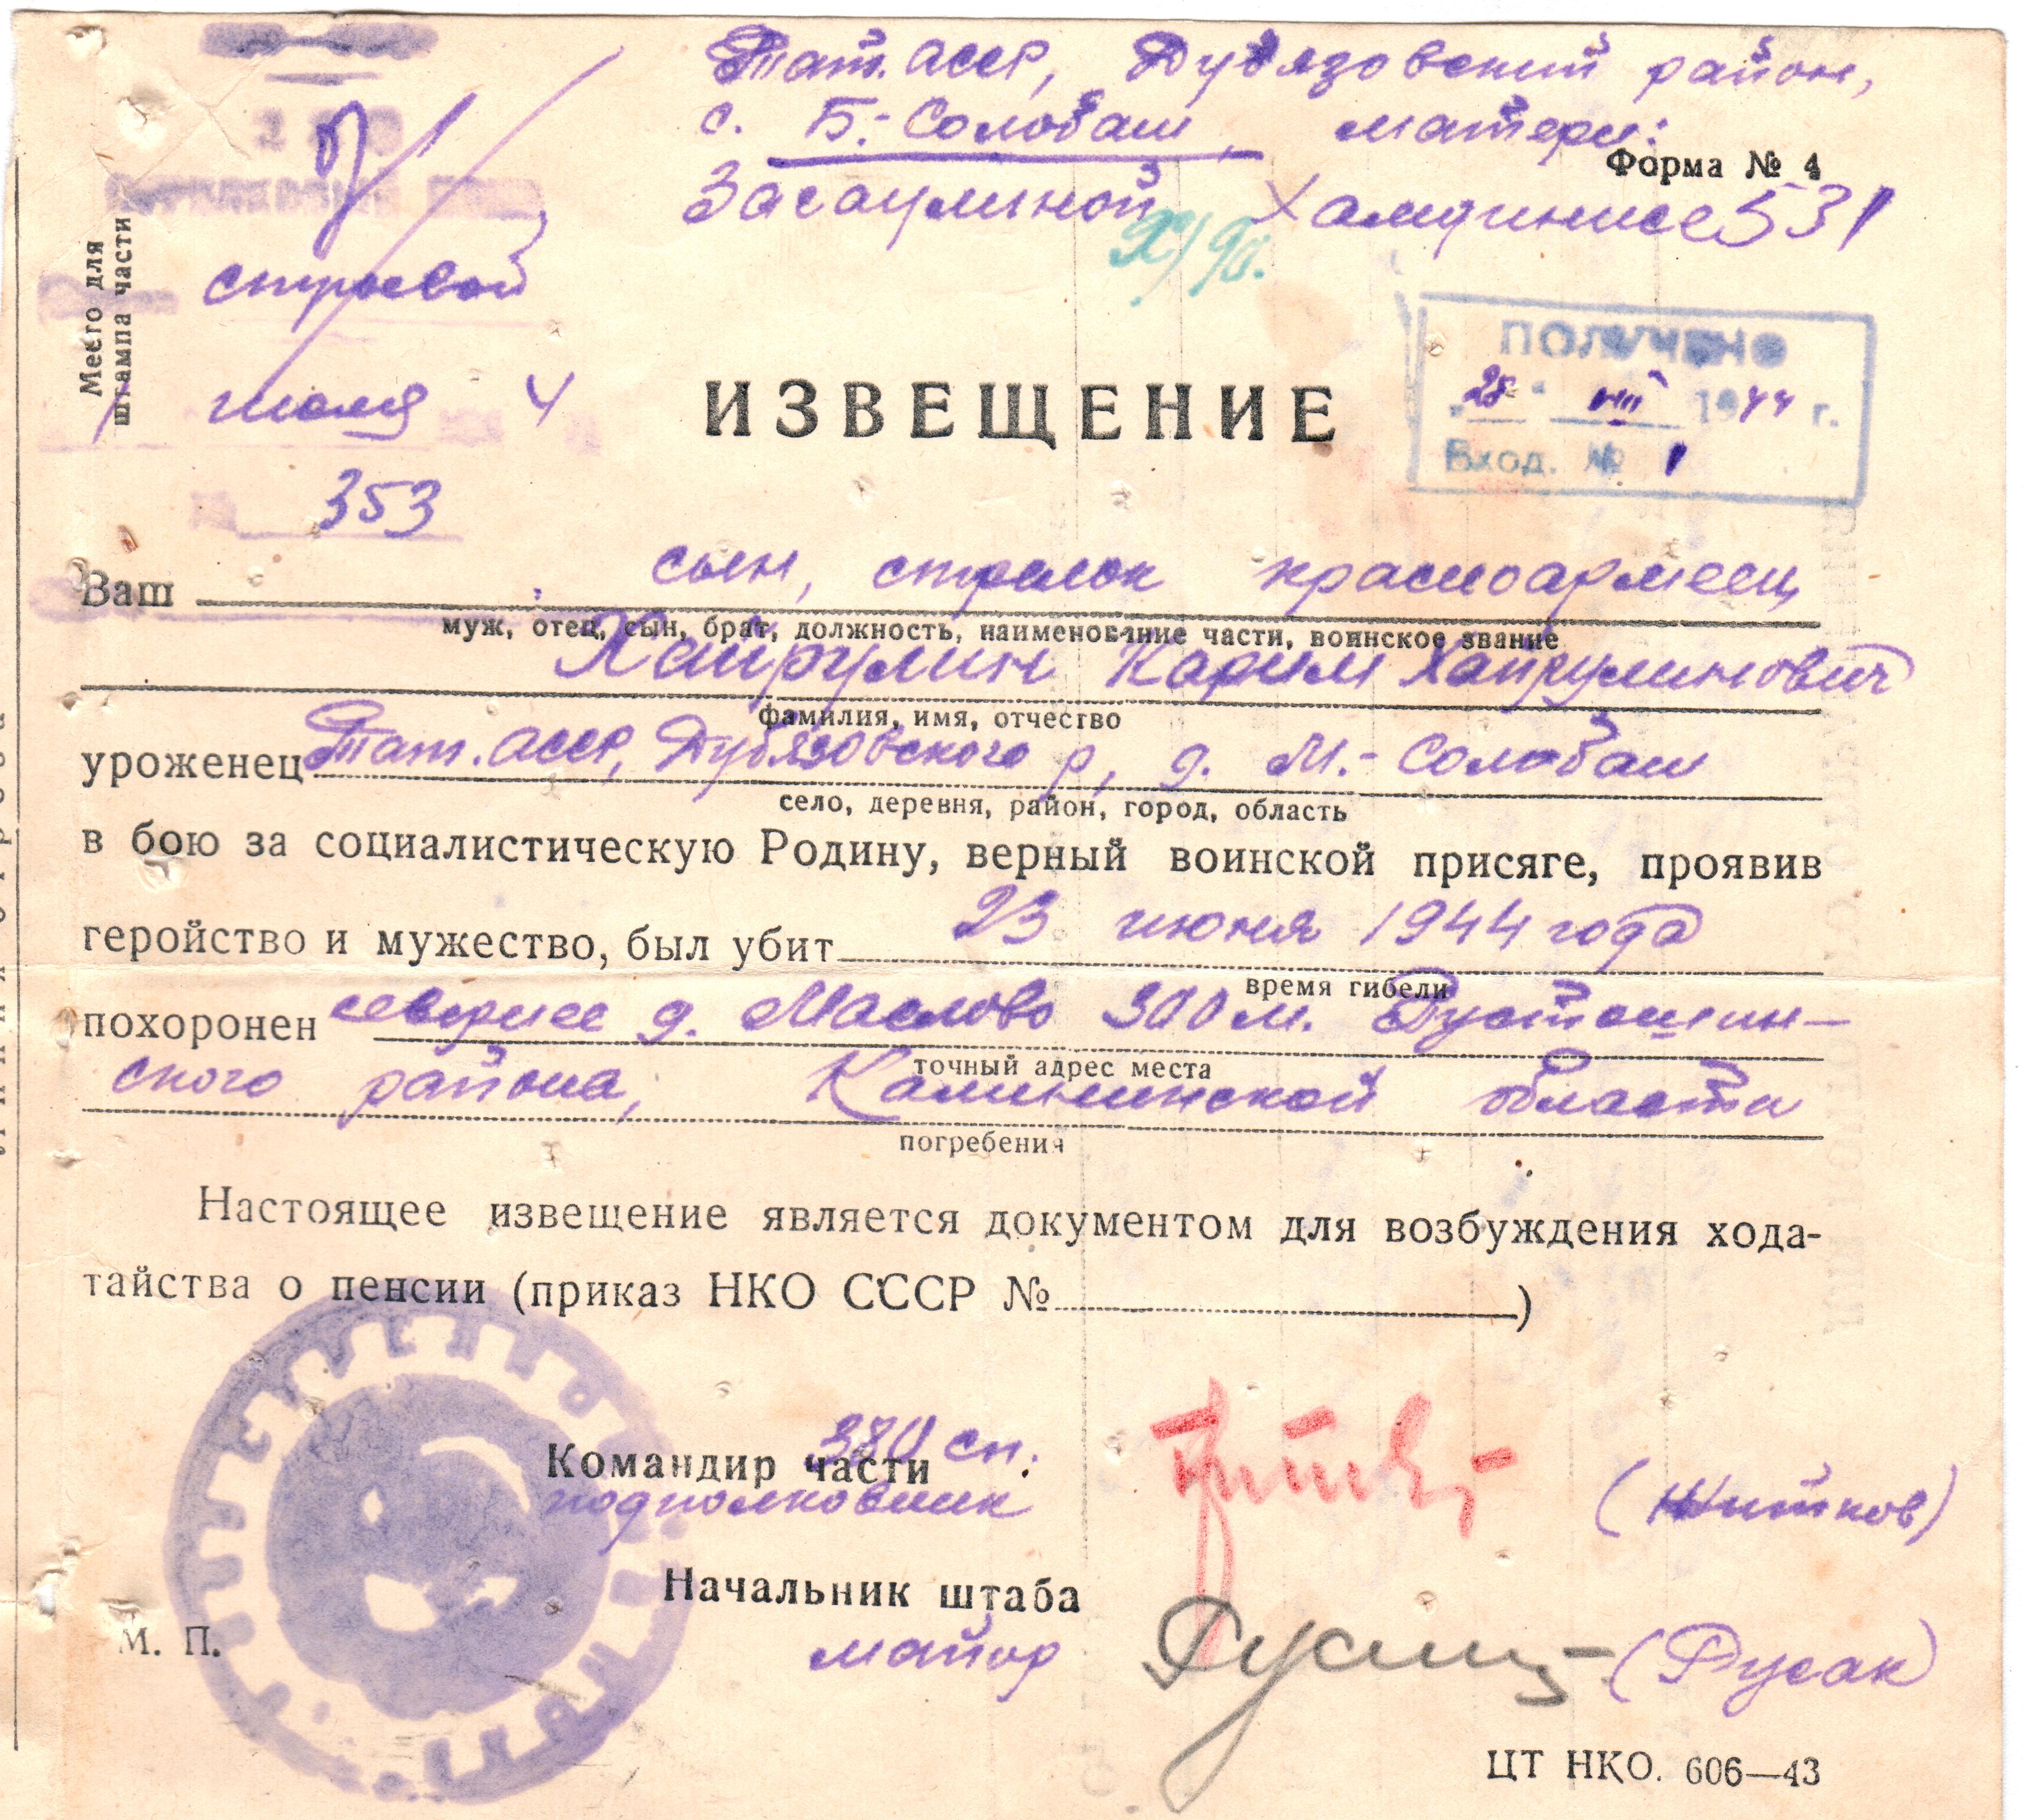 Тат. АССР, Дубъязовский район,
с. Б.-Солобаш, матери:
Форма № 4
Засаулиной Хамдинисе 531
Место для
штампа части
строевой
июля 4
353
ПОЛУЧЕНО
„28“ VIII 1944 г.
Вход. № 1
ИЗВЕЩЕНИЕ
Ваш сын, стрелок красноармеец
муж, отец, сын, брат, должность, наименование части, воинское звание
Хайрулин Карим Хайрулинович
фамилия, имя, отчество
уроженец Тат. АССР, Дубязовского р, д. М.-Солобаш
село, деревня, район, город, область
в бою за социалистическую Родину, верный воинской присяге, проявив
геройство и мужество, был убит 23 июня 1944 года
время гибели
похоронен севернее д. Маслово 300 м. Пустошкин-
точный адрес места
ского района, Калининской области
погребения
Настоящее извещение является документом для возбуждения хода-
тайства о пенсии (приказ НКО СССР № )
380 сп.
Командир части
подполковник (Житков)
Начальник штаба
майор (Русак)
М. П.
ЦТ НКО. 606—43